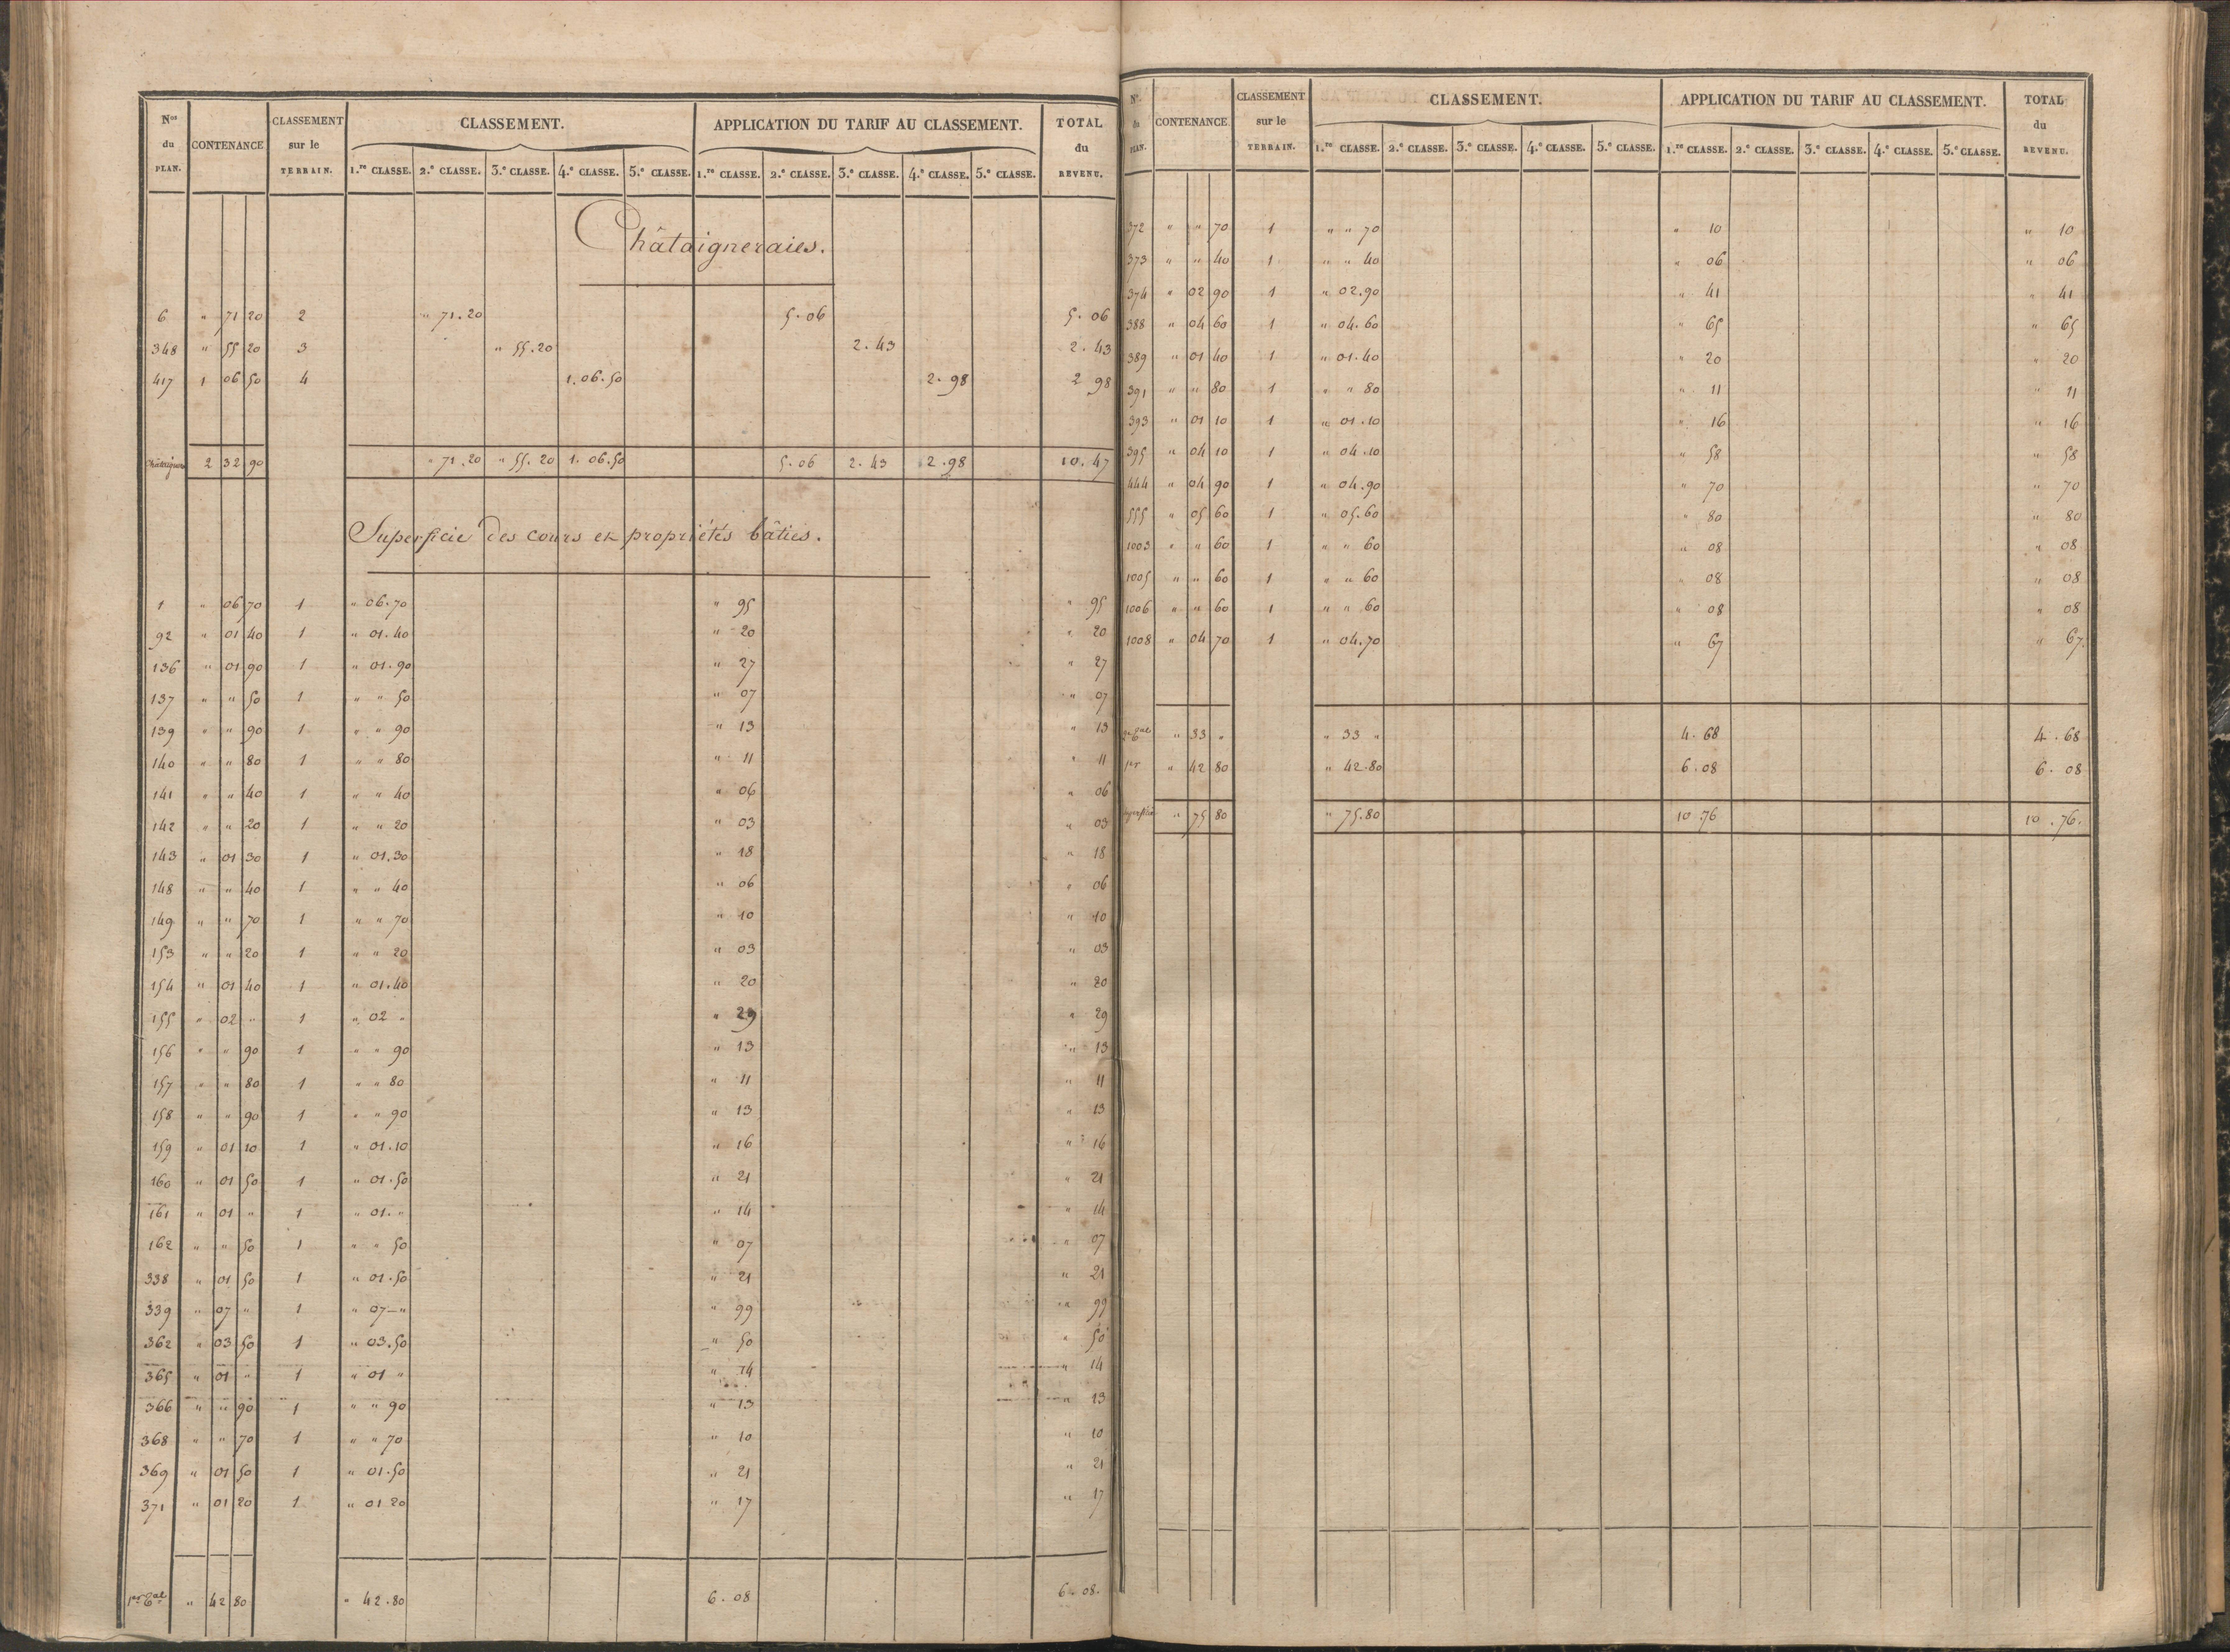 Nos du PLAN. CONTENANCE CLASSEMENT sur le TERRAIN. CLASSEMENT. APPLICATION DU TARIF AU CLASSEMENT. TOTAL du REVENU.
1.re CLASSE. 2.e CLASSE. 3.e CLASSE. 4.e CLASSE. 5.e CLASSE. 1.re CLASSE. 2.e CLASSE. 3.e CLASSE. 4.e CLASSE. 5.e CLASSE.
Châtaigneraies.
6 " 71 20 2 " 71.20 5.06 5.06
348 " 55 20 3 " 55.20 2.43 2.43
417 1 06 50 4 1.06.50 2.98 2 98
2 32 90 " 71.20 " 55.20 1.06.50 5.06 2.43 2.98 10.47
Superficie des cours et propriétés bâties.
1 " 06 70 1 " 06.70 " 95 " 95
92 " 01 40 1 " 01.40 " 20 " 20
136 " 01 90 1 " 01.90 " 27 " 27
137 " " 50 1 " " 50 " 07 " 07
139 " " 90 1 " " 90 " 13 " 13
140 " " 80 1 " " 80 " 11 " 11
141 " " 40 1 " " 40 " 06 " 06
142 " " 20 1 " " 20 " 03 " 03
143 " 01 30 1 " 01.30 " 18 " 18
148 " " 40 1 " " 40 " 06 " 06
149 " " 70 1 " " 70 " 10 " 10
153 " " 20 1 " " 20 " 03 " 03
154 " 01 40 1 " 01.40 " 20 " 20
155 " 02 " 1 " 02 " " 29 " 29
156 " " 90 1 " " 90 " 13 " 13
157 " " 80 1 " " 80 " 11 " 11
158 " " 90 1 " " 90 " 13 " 13
159 " 01 10 1 " 01.10 " 16 " 16
160 " 01 50 1 " 01.50 " 21 " 21
161 " 01 " 1 " 01. " " 14 " 14
162 " " 50 1 " " 50 " 07 " 07
338 " 01 50 1 " 01.50 " 21 " 21
339 " 07 " 1 " 07 — " " 99 " 99
362 " 03 50 1 " 03.50 " 50 " 50
365 " 01 " 1 " 01 " " 14 " 14
366 " " 90 1 " " 90 " 13 " 13
368 " " 70 1 " " 70 " 10 " 10
369 " 01 50 1 " 01.50 " 21 " 21
371 " 01 20 1 " 01 20 " 17 " 17
" 42 80 " 42.80 6.08 6.08.
Nos du PLAN. CONTENANCE CLASSEMENT sur le TERRAIN. CLASSEMENT. APPLICATION DU TARIF AU CLASSEMENT. TOTAL du REVENU.
1.re CLASSE. 2.e CLASSE. 3.e CLASSE. 4.e CLASSE. 5.e CLASSE. 1.re CLASSE. 2.e CLASSE. 3.e CLASSE. 4.e CLASSE. 5.e CLASSE.
372 " " 70 1 " " 70 " 10 " 10
373 " " 40 1 " " 40 " 06 " 06
374 " 02 90 1 " 02.90 " 41 " 41
388 " 04 60 1 " 04.60 " 65 " 65
389 " 01 40 1 " 01.40 " 20 " 20
391 " " 80 1 " " 80 " 11 " 11
393 " 01 10 1 " 01.10 " 16 " 16
395 " 04 10 1 " 04.10 " 58 " 58
444 " 04 90 1 " 04.90 " 70 " 70
555 " 05 60 1 " 05.60 " 80 " 80
1003 " " 60 1 " " 60 " 08 " 08
1005 " " 60 1 " " 60 " 08 " 08
1006 " " 60 1 " " 60 " 08 " 08
1008 " 04 70 1 " 04.70 " 67 " 67.
" 33 " " 33 " 4.68 4.68
1er " 42 80 " 42.80 6.08 6.08
" 75 80 " 75.80 10.76 10.76.